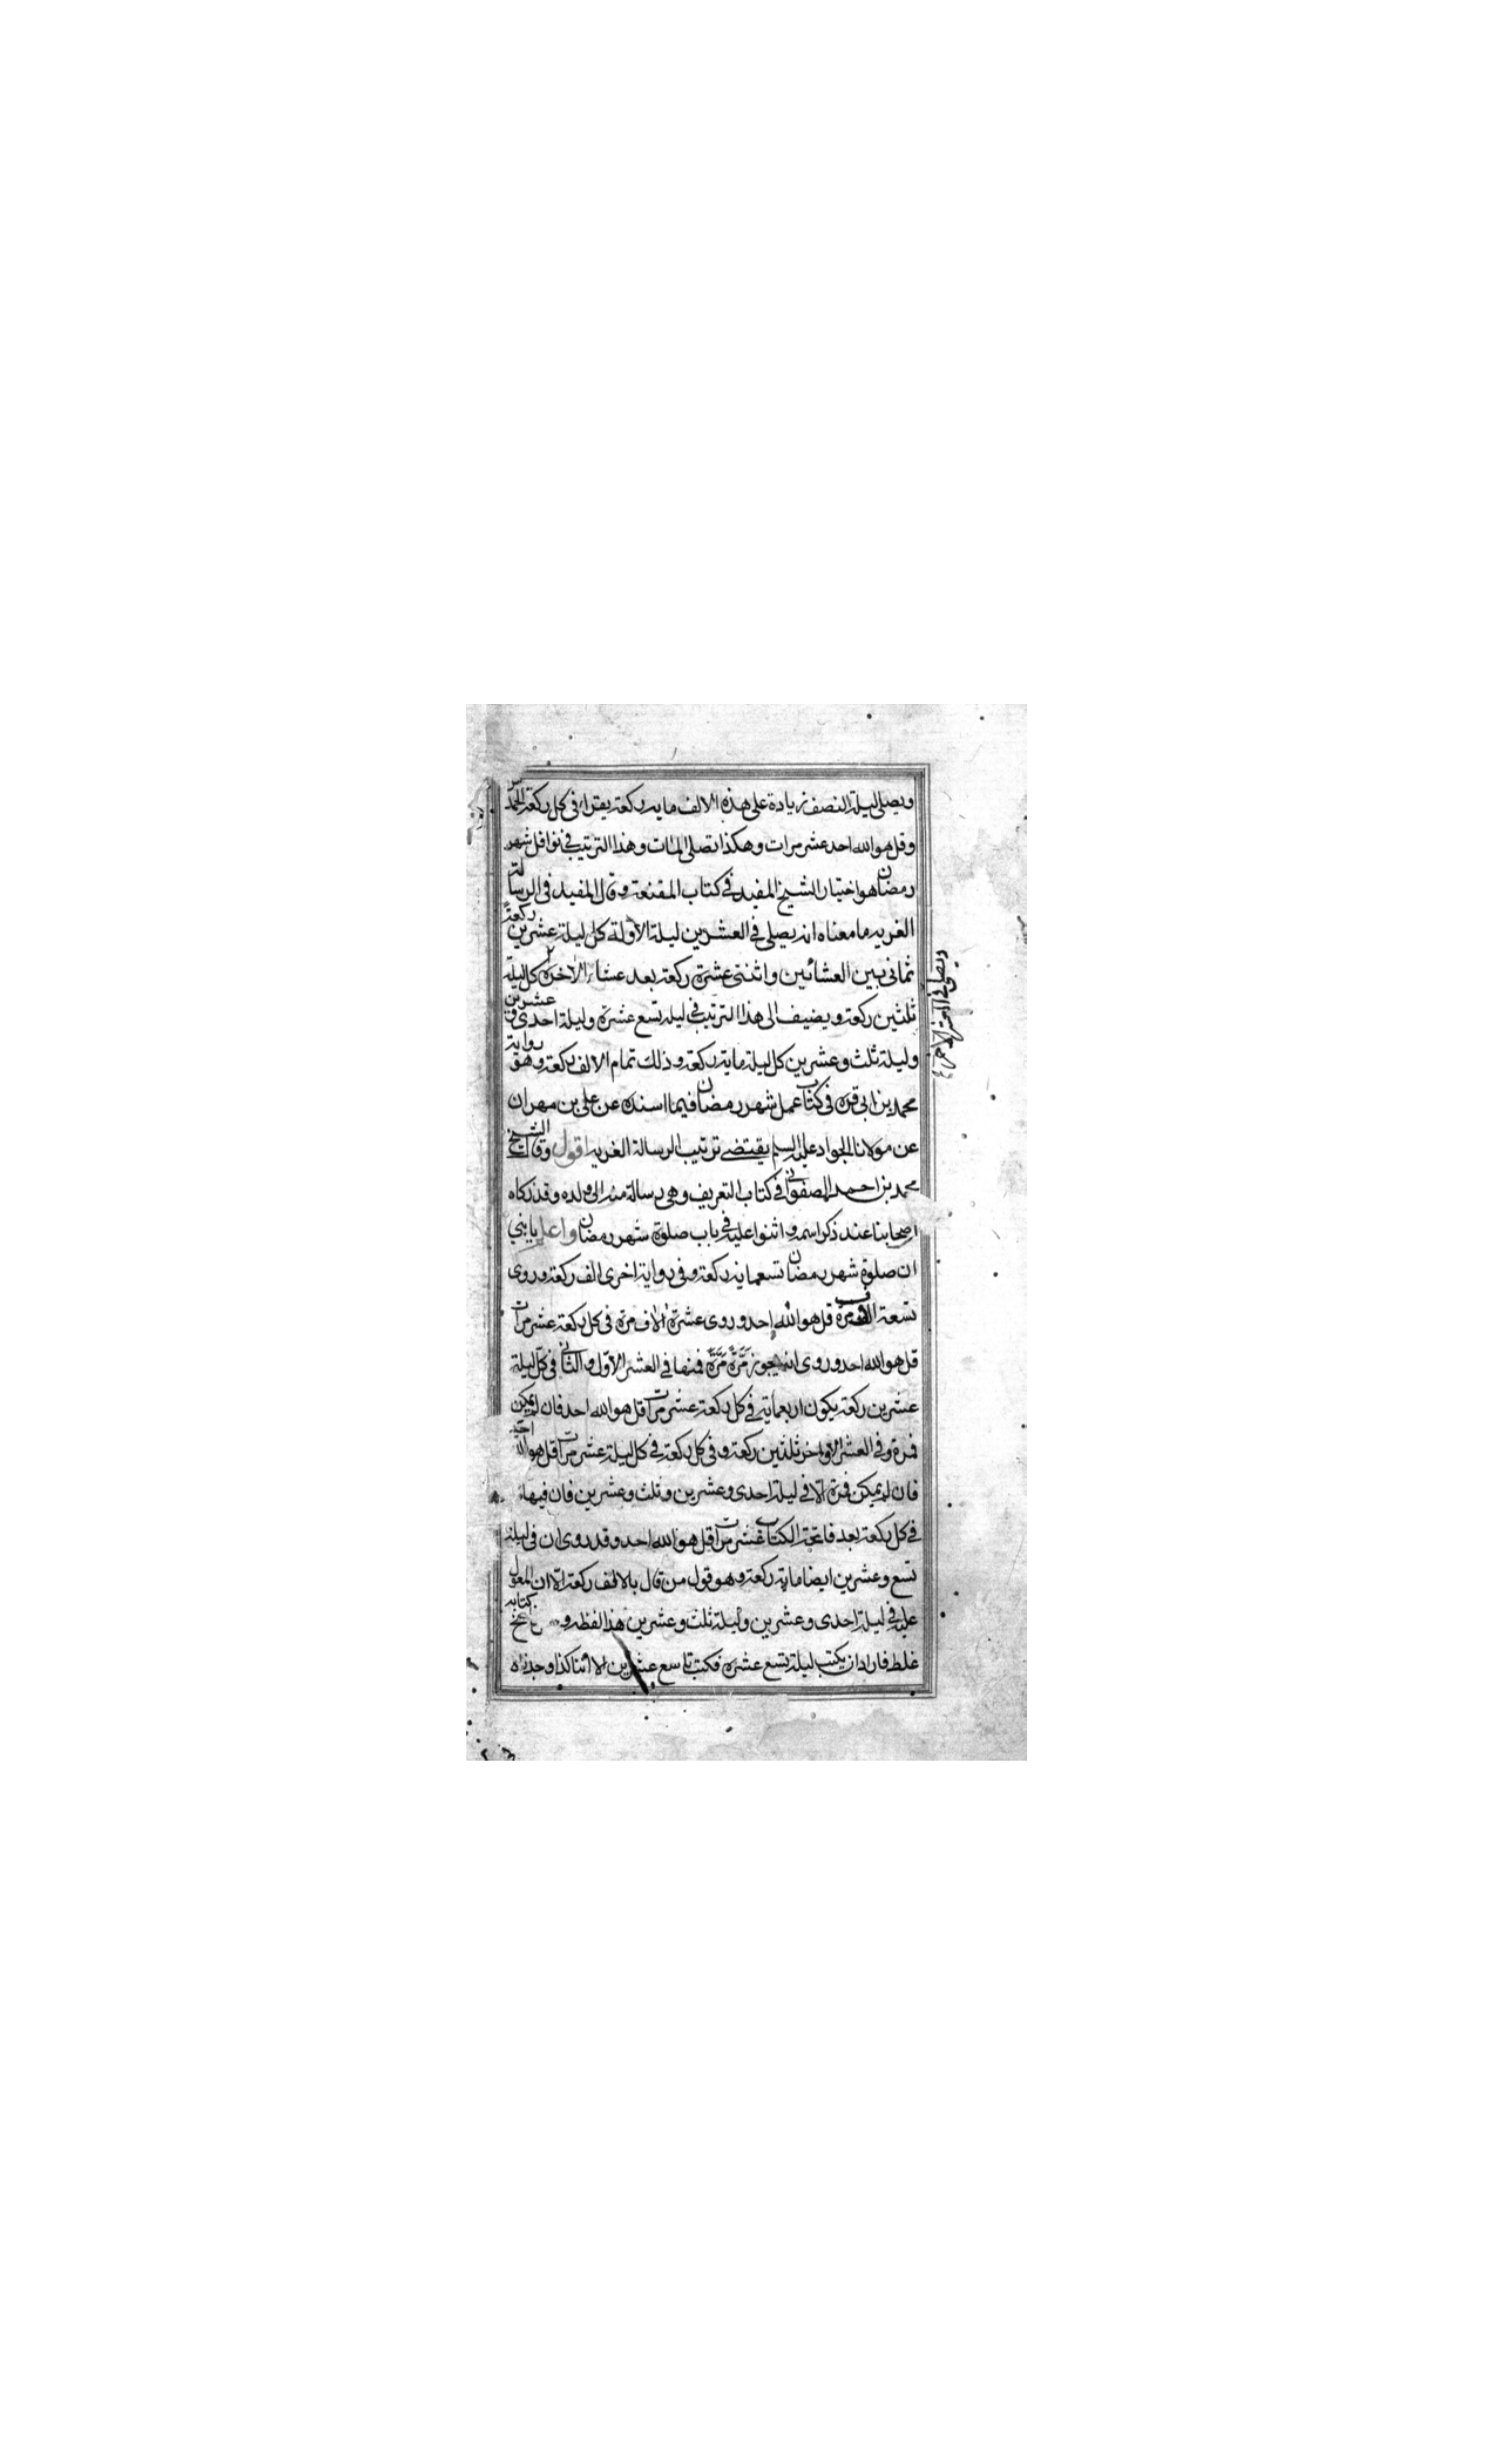 ويصلى ليلة النصف زيادة على هذه الالف ماية ركعة يقرا فى كل ركعة الحمد
وقل هو الله احد عشر مرات وهكذا تصلى المات وهذا الترتيب فى نوافل شهر
رمضان هو اختيار الشيخ المفيد فى كتاب المقنعة وقال المفيد فى الرسالة
الغرية ما معناه انه يصلى فى العشرين ليلة الاولة كل ليلة عشرين ركعة
ثمانى بين العشائين واثنتى عشرة ركعة بعد عشاء الاخرة كل ليلة
ويصلى فى العشر الاخر
ثلثين ركعة ويضيف الى هذا الترتيب فى ليلة تسع عشرة وليلة احدى وعشرين
وليلة ثلث وعشرين كل ليلة ماية ركعة وذلك تمام الالف ركعة وهو رواية
محمد بن ابى قرة فى كتاب عمل شهر رمضان فيما اسنده عن على بن مهران
عن مولانا الجواد عليه السلم يقتضى ترتيب الرسالة الغرية اقول وقال الشيخ
محمد بن احمد الصفوانى فى كتاب التعريف وهى رسالة منه الى ولده وقد زكاه
اصحابنا عند ذكر اسمه واثنوا عليه فى باب صلوة شهر رمضان واعلم يا بني
ان صلوة شهر رمضان تسعماية ركعة وفى رواية اخرى الف ركعة وروى
تسعة الاف مرة قل هو الله احد وروى عشرة الاف مرة فى كل ركعة عشر مرات
قل هو الله احد وروى انه يجوز مرة مرة فمنها فى العشر الاول والثانى فى كل ليلة
عشرين ركعة يكون اربعماية فى كل ركعة عشر مرات قل هو الله احد فان لم يمكن
فمرة وفى العشر الاواخر ثلثين ركعة وفى كل ركعة فى كل ليلة عشر مرات قل هو الله احد
فان لم يمكن فمرة الا فى ليلة احدى وعشرين وثلث وعشرين فان فيها
فى كل ركعة بعد فاتحة الكتاب عشر مرات قل هو الله احد وقد روى ان فى ليلة
تسع وعشرين ايضا ماية ركعة وهو قول من قال بالالف ركعة الا ان المعول
عليه فى ليلة احدى وعشرين وليلة ثلث وعشرين هذا لفظه و كتابه
غلط فاراد ان يكتب ليلة تسع عشرة فكتب تاسع عشرين الا اننا كذا وجدناه